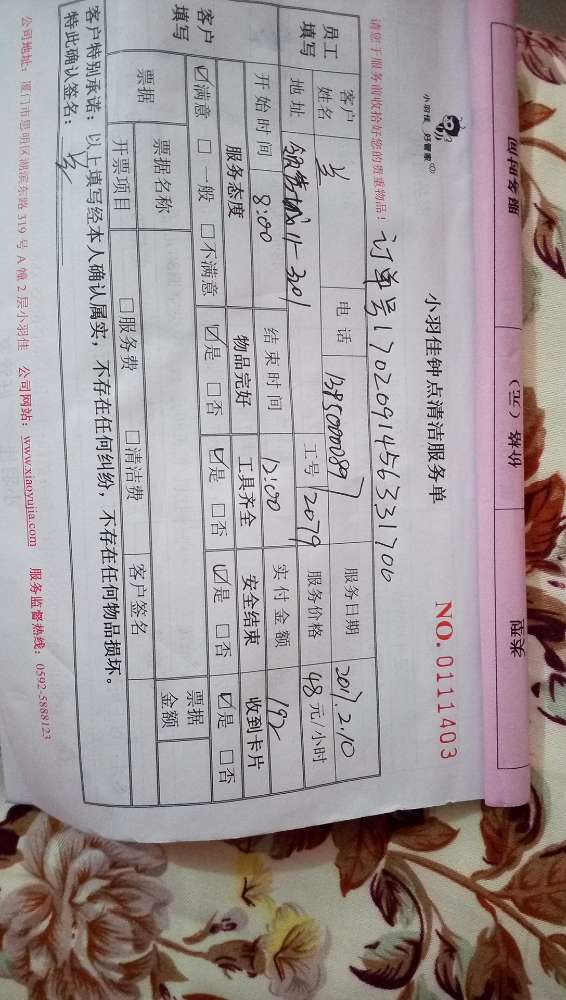 小羽佳 好管家
小羽佳钟点清洁服务单
NO. 0111403
请您于服务前收拾好您的贵重物品！
订单号1702091456331706
员工填写
客户姓名
兰
电话
服务日期
2017.2.10
地址
11-301
工号
2079
服务价格
48元/小时
开始时间
8:00
结束时间
12:00
实付金额
192
客户填写
服务态度
物品完好
工具齐全
安全结束
收到卡片
☑满意 □一般 □不满意
☑是 □否
☑是 □否
☑是 □否
☑是 □否
票据
票据名称
票据金额
开票项目
□服务费 □清洁费
客户签名
客户特别承诺：以上填写经本人确认属实，不存在任何纠纷，不存在任何物品损坏。
特此确认签名：兰
公司地址：厦门市思明区湖滨东路 319 号 A 幢 2 层小羽佳 公司网站：www.xiaoyujia.com 服务监督热线：0592-5888123